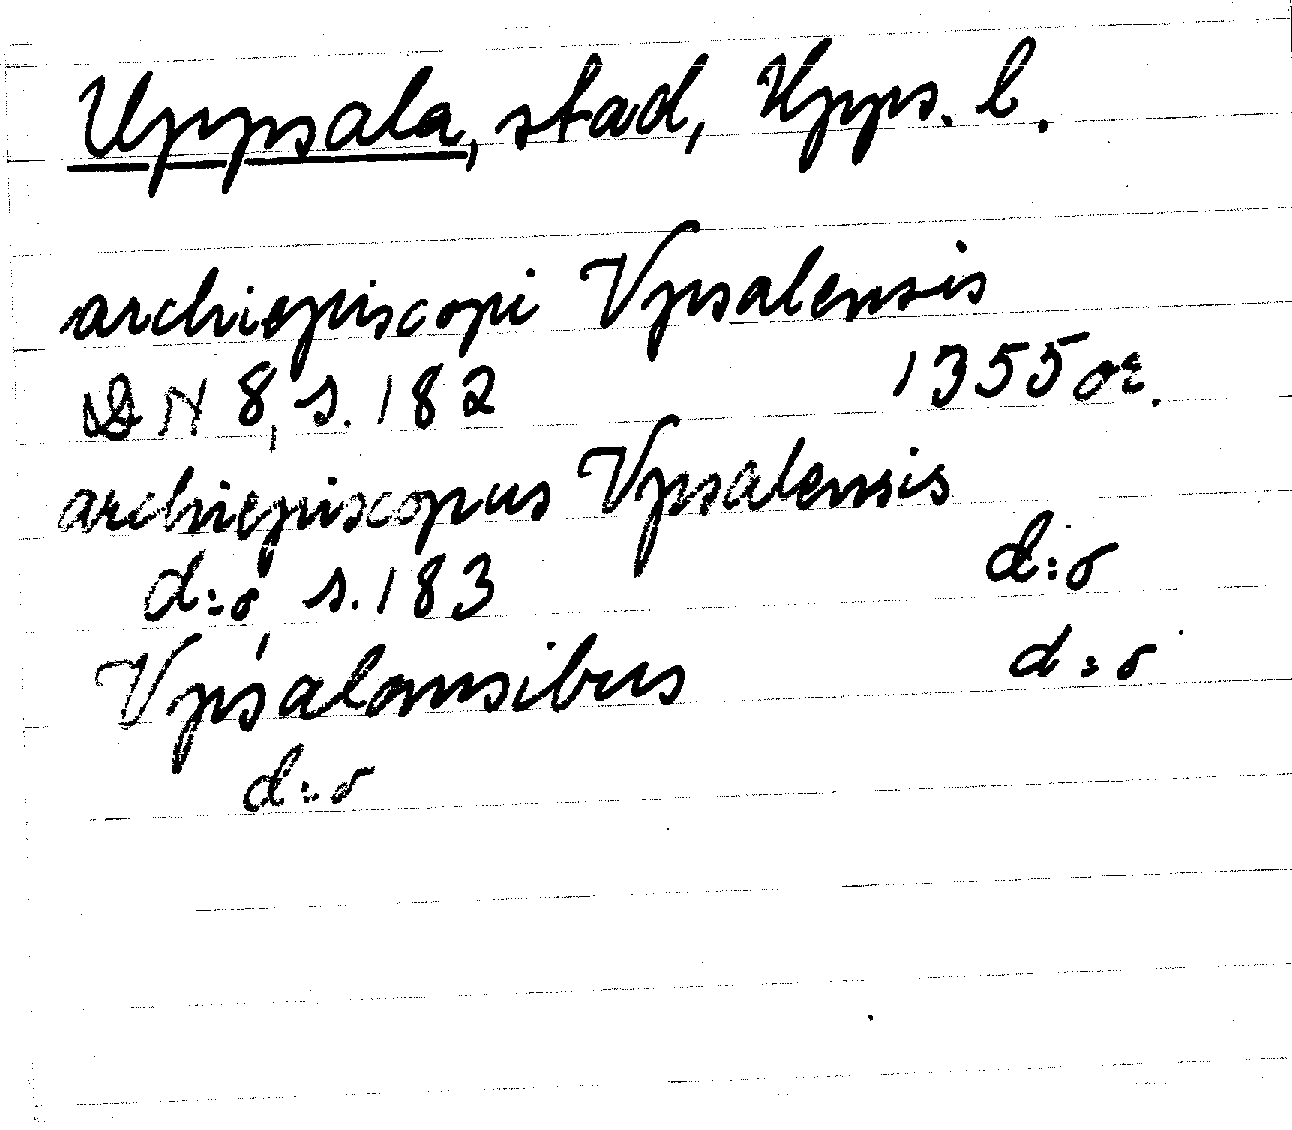 Uppsala, stad, Upps. l.
archiepiscopi Vpsalensis
DN 8, s. 182 1355 or.
archiepiscopus Vpsalensis
d:o, s. 183 d:o
Vpsalensibus d:o
d:o